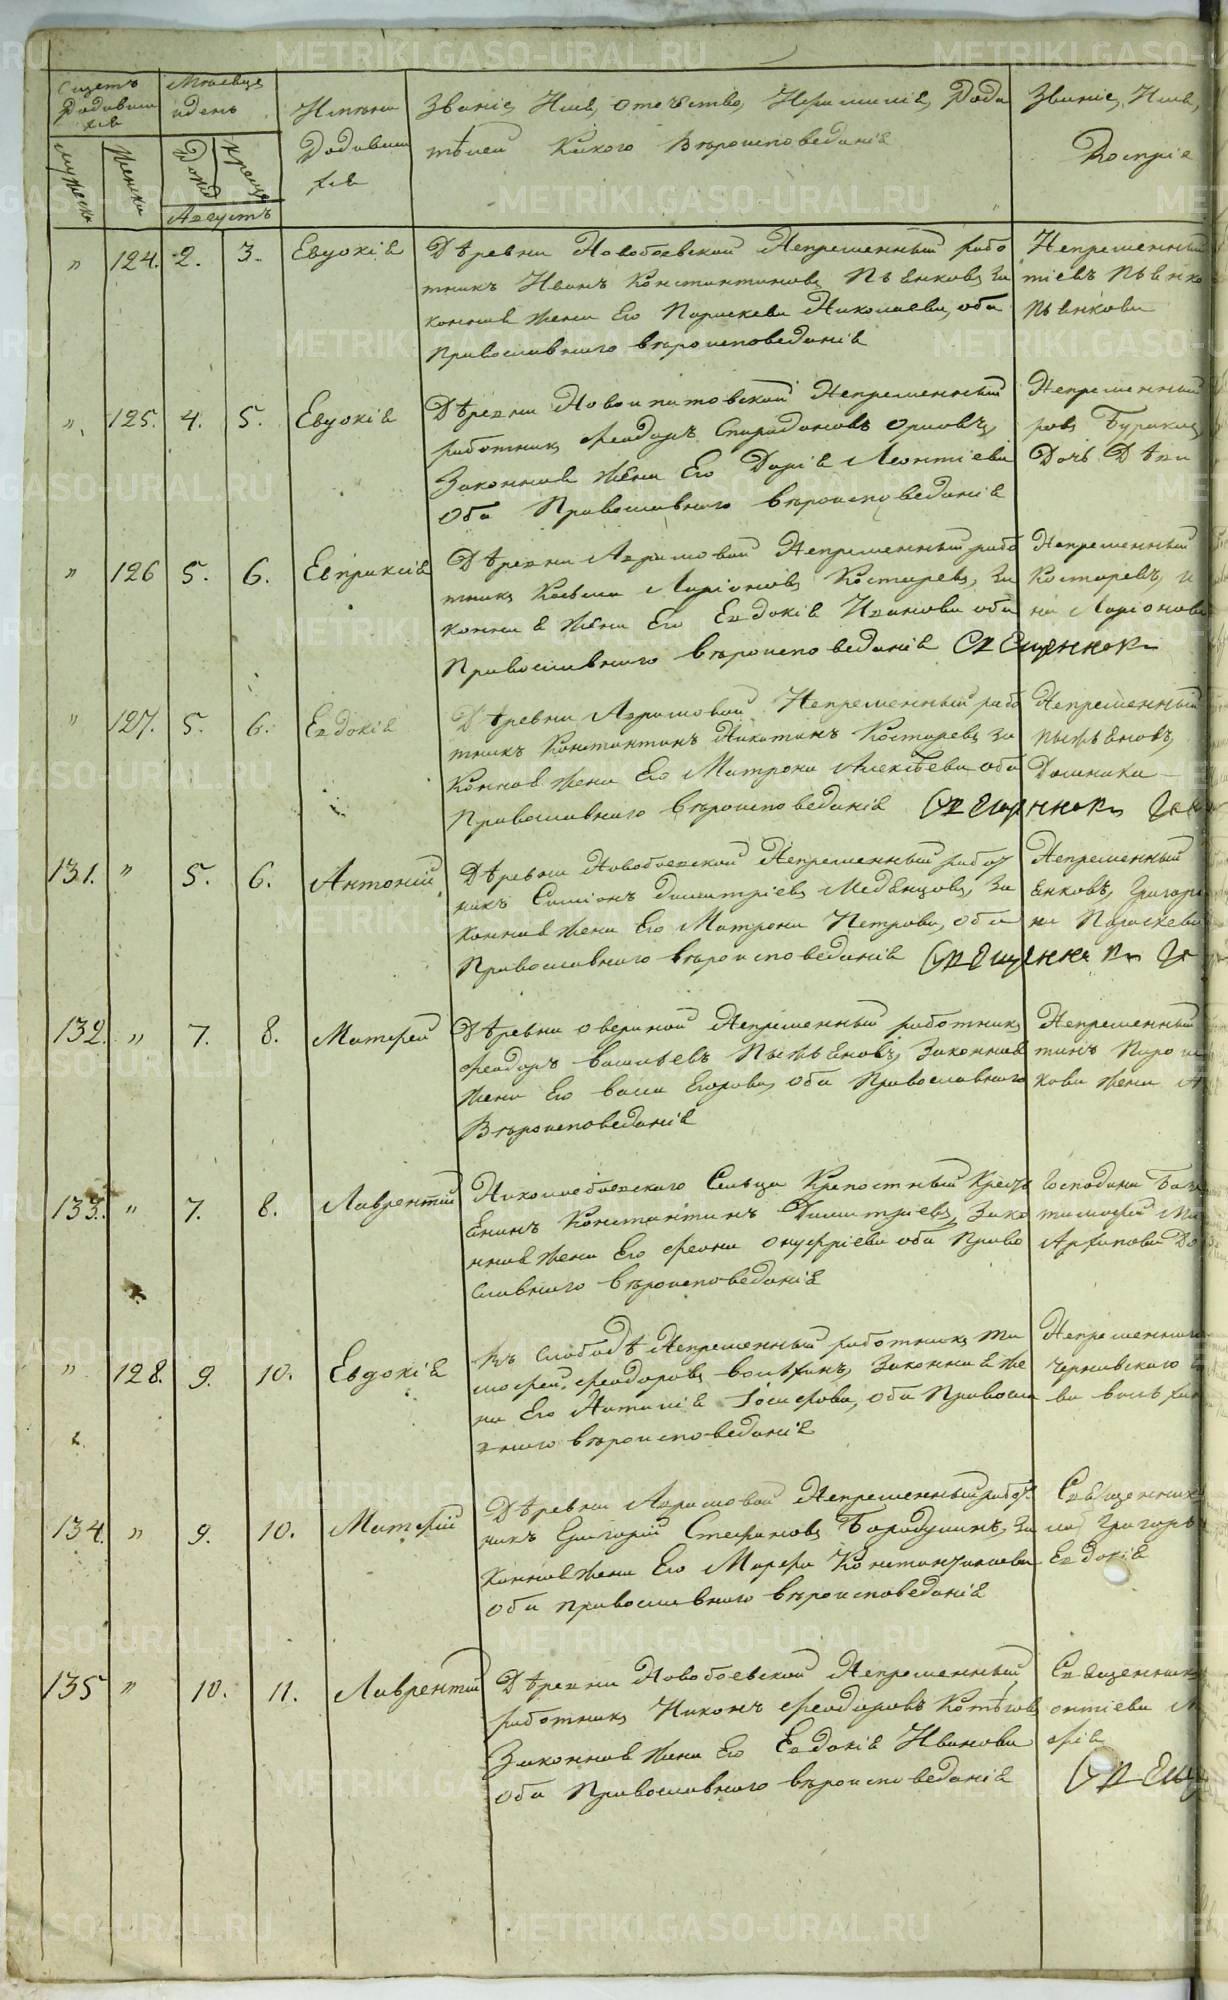 Щетъ Родивши хся
Мѣсяцъ и день
Имена Родивши хся
Званіе, Имя, отечество, Фамилія, Роди
телей Какого Вѣроисповеданія
Званіе, Имя,
Воспріе
мужеска
Женска
Рожд
креще
Августъ
" 124. 2. 3. Евдокія
Дѣревни Новобоевской Непременный рабо
тникъ Иванъ Константиновъ Пьянковъ, за
конная жена Его Параскева Николаева, оба
Православнаго вѣроисповеданія
Непременный
тіевъ Пьянко
Пьянкова
" 125. 4. 5. Евдокія
Дѣревни Новоипатовской Непременный
работникъ Феодоръ Спиридоновъ Орловъ,
Законная жена Его Дарія Леонтіева
Оба Православнаго вѣроисповеданія
Непременный
ровъ Бураковъ
Дочь Дѣви
" 126 5. 6. Евпраксія
Дѣревни Аврамовой Непременный рабо
тникъ Косьма Ларіоновъ Костаревъ, за
конная жена Его Евдокія Иванова оба
Православнаго вѣроисповеданія Священникъ
Непременный
Костаревъ, и
на Ларіонова
" 127. 5. 6. Евдокія
Дѣревни Аврамовой Непременный рабо
тникъ Константинъ Никитинъ Костаревъ за
Конная жена Его Матрона Алексѣева оба
Православнаго Вѣроисповеданія Священникъ
Непременный
пыжьяновъ,
Домника
131. " 5. 6. Антоній
Дѣревни Новобоевской Непременный работ
никъ Симіонъ Димитріевъ Медвѣцовъ, за
конная жена Его Матрона Петрова, оба
Православнаго вѣроисповеданія Священникъ
Непременный
янковъ, Григорі
на Параскева
132. " 7. 8. Матфей
Дѣревни Овериной Непременный работникъ
Феодоръ Васильевъ Пыжьяновъ, Законная
жена Его Васа Егорова, оба Православнаго
Вѣроисповеданія
Непременный
кова жена
133. " 7. 8. Лаврентій
Николаебоевскаго Сельца Крепостный Кресть
янинъ Константинъ Димитріевъ, Зако
нная жена Его Феона Онуфріева оба Право
славнаго вѣроисповеданія
Господина
тимофей
Архипова
" 128. 9. 10. Евдокія
Въ слободѣ Непременный работникъ Ти
мофей Феодоровъ Волѣхинъ, Законная же
на Его Наталія Іосифова, оба Правосла
внаго вѣроисповеданія
Непременнаго
Чернавскаго
134. " 9. 10. Матфій
Дѣревни Аврамовой Непременный работ
никъ Григорій Стефановъ Бородулинъ, за
конная жена Его Марфа Константинова
Оба Православнаго вѣроисповеданія
Священникъ
Григорь
Евдокія
135 " 10. 11. Лаврентій
Дѣревни Новобоевской Непременный
работникъ Никонъ Феодоровъ Котѣговъ
Законная жена Его Евдокія Иванова
Оба Православнаго вѣроисповеданія
Священника
онтіева
фія
Свящ
METRIKI.GASO-URAL.RU